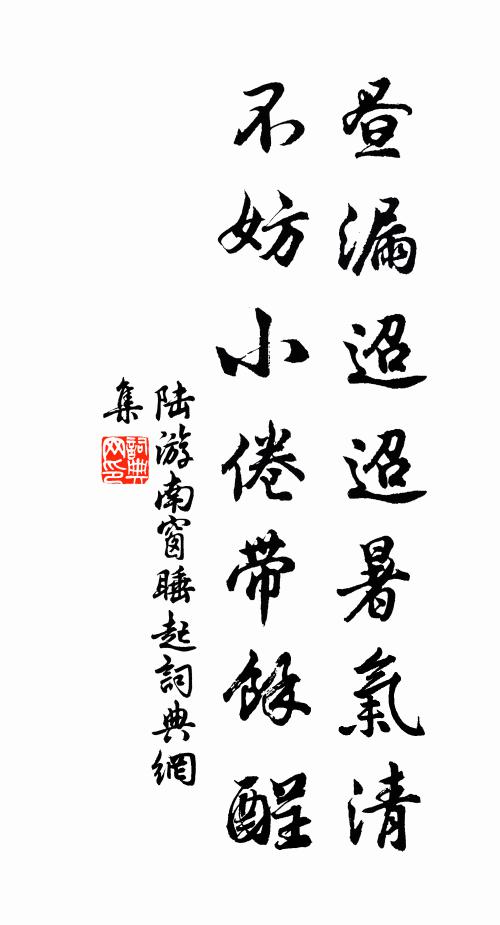 晝漏迢迢暑氣清
不妨小倦帶餘酲
陸游南窗睡起詞典網
集
詞典
网印